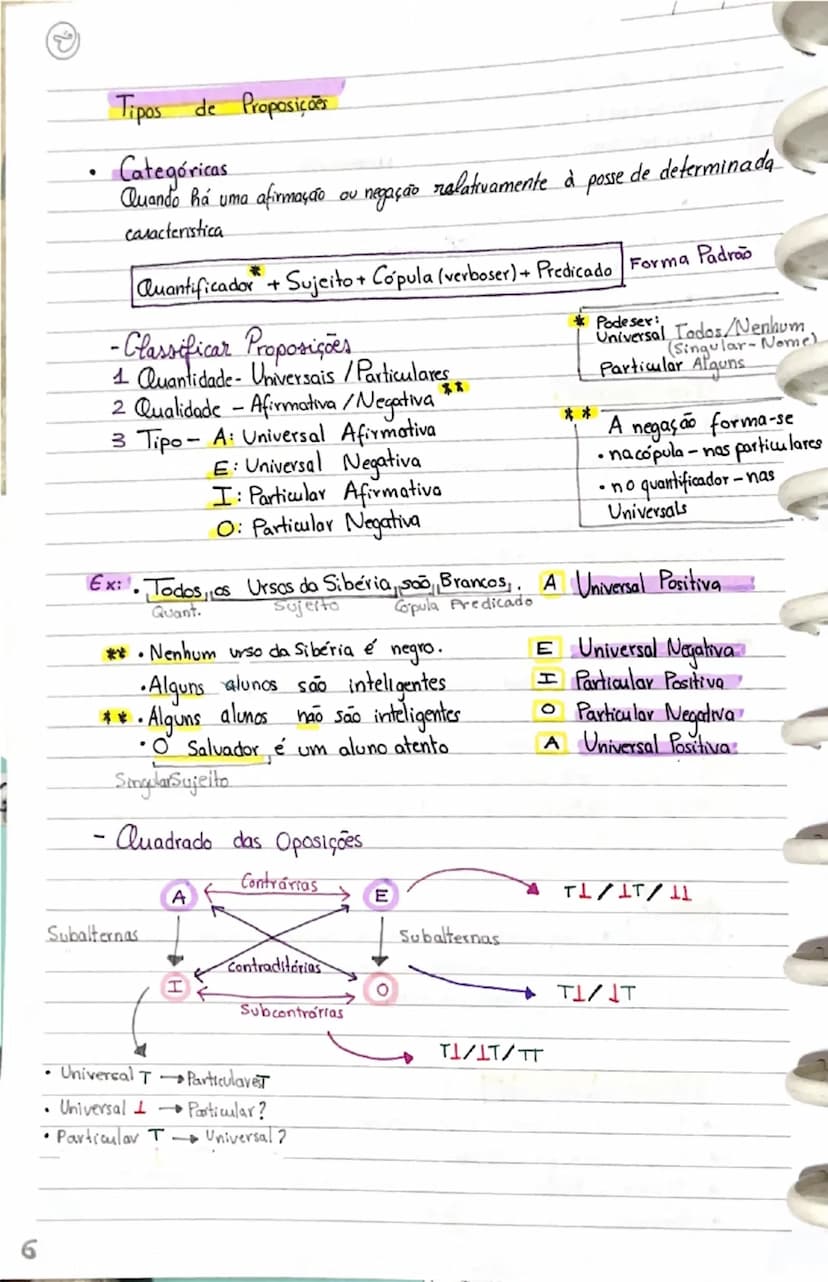 Tipos de Proposições
• Categóricas
Quando há uma afirmação ou negação relativamente à posse de determinada
caracteristica
Quantificador* + Sujeito + Cópula (verboser) + Predicado Forma Padrão
* Podeser:
Universal Todos/Nenhum
(Singular - Nome)
Particular Alguns
- Classificar Proposições
1 Quantidade - Universais / Particulares
2 Qualidade - Afirmativa / Negativa **
3 Tipo - A: Universal Afirmativa
E: Universal Negativa
I: Particular Afirmativa
O: Particular Negativa
** A negação forma-se
• na cópula - nas particulares
• no quantificador - nas
Universals
Ex: • Todos, os Ursos da Sibéria, são, Brancos,. A Universal Positiva
Quant. Sujeito Cópula Predicado
** • Nenhum urso da Sibéria é negro. E Universal Negativa
• Alguns alunos são inteligentes I Particular Positiva
** • Alguns alunos não são inteligentes O Particular Negativa
• O Salvador, é um aluno atento A Universal Positiva
Singular Sujeito
- Quadrado das Oposições
A Contrárias E T⊥/⊥T/⊥⊥
Subalternas Subalternas
Contraditórias
I O T⊥/⊥T
Subcontrárias
T⊥/⊥T/TT
• Universal T → Particular é T
• Universal ⊥ → Particular?
• Particular T → Universal?
6